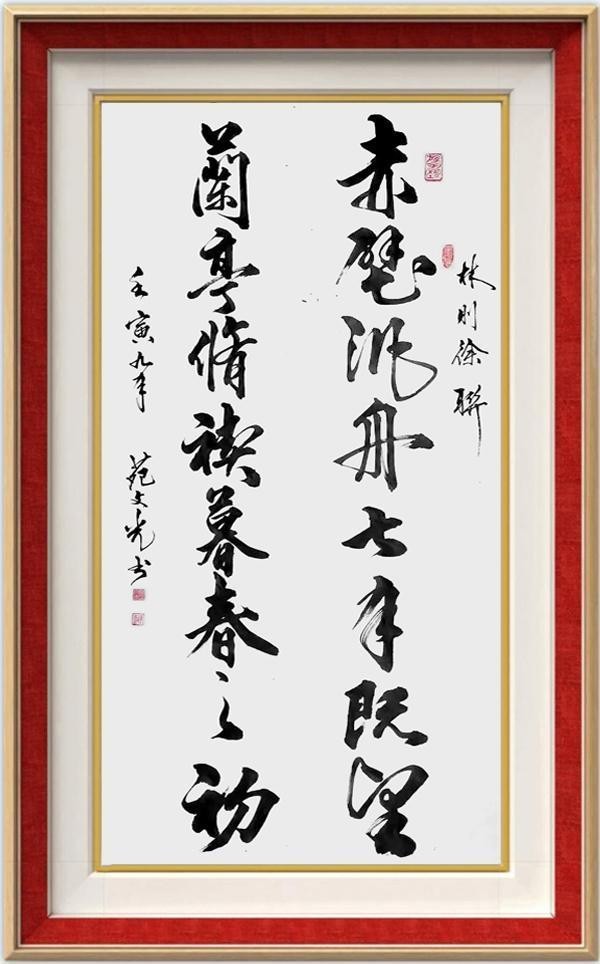 林則徐聯
赤壁汎舟七月既望
蘭亭脩禊暮春之初
壬寅九月 范文光书